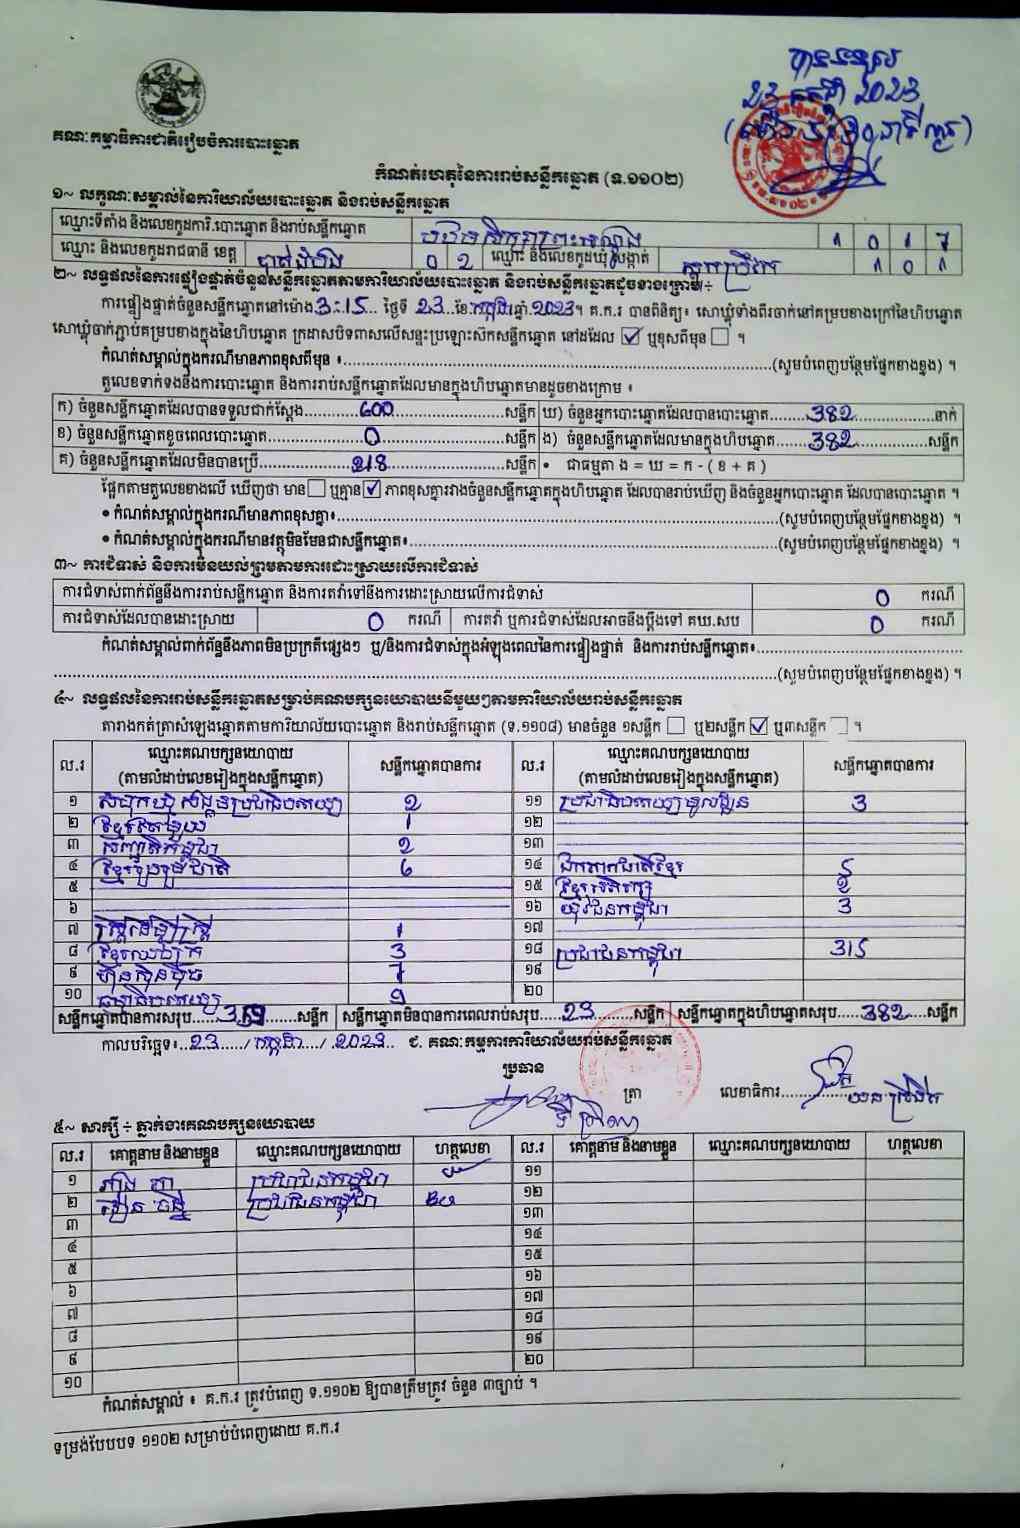 បានទទួល
23 កក្កដា 2023
គណៈកម្មាធិការជាតិរៀបចំការបោះឆ្នោត
កំណត់ហេតុនៃការរាប់សន្លឹកឆ្នោត (ទ.១១០២)
១~ លក្ខណៈសម្គាល់នៃការិយាល័យបោះឆ្នោត និងរាប់សន្លឹកឆ្នោត
ឈ្មោះទីតាំង និងលេខកូដការិ.បោះឆ្នោត និងរាប់សន្លឹកឆ្នោត 1 0 1 7
ឈ្មោះ និងលេខកូដរាជធានី ខេត្ត បាត់ដំបង 0 2 ឈ្មោះ និងលេខកូដឃុំ សង្កាត់ 1 0 1
២~ លទ្ធផលនៃការផ្ទៀងផ្ទាត់ចំនួនសន្លឹកឆ្នោតតាមការិយាល័យបោះឆ្នោត និងរាប់សន្លឹកឆ្នោតដូចខាងក្រោម÷
ការផ្ទៀងផ្ទាត់ចំនួនសន្លឹកឆ្នោតនៅម៉ោង 3:15 ថ្ងៃទី 23 ខែ កក្កដា ឆ្នាំ 2023។ គ.ក.រ បានពិនិត្យ៖ សោឃ្លុំទាំងពីរចាក់នៅគម្របខាងក្រៅនៃហិបឆ្នោត
សោឃ្លុំចាក់ភ្ជាប់គម្របខាងក្នុងនៃហិបឆ្នោត ក្រដាសបិទពាសលើសន្ទះប្រឡោះស៊កសន្លឹកឆ្នោត នៅដដែល ☑ ឬខុសពីមុន ☐ ។
កំណត់សម្គាល់ក្នុងករណីមានភាពខុសពីមុន ៖ (សូមបំពេញបន្ថែមផ្នែកខាងខ្នង) ។
តួលេខទាក់ទងនឹងការបោះឆ្នោត និងការរាប់សន្លឹកឆ្នោតដែលមានក្នុងហិបឆ្នោតមានដូចខាងក្រោម ៖
ក) ចំនួនសន្លឹកឆ្នោតដែលបានទទួលជាក់ស្តែង 600 សន្លឹក ឃ) ចំនួនអ្នកបោះឆ្នោតដែលបានបោះឆ្នោត 382 នាក់
ខ) ចំនួនសន្លឹកឆ្នោតខូចពេលបោះឆ្នោត 0 សន្លឹក ង) ចំនួនសន្លឹកឆ្នោតដែលមានក្នុងហិបឆ្នោត 382 សន្លឹក
គ) ចំនួនសន្លឹកឆ្នោតដែលមិនបានប្រើ 218 សន្លឹក • ជាធម្មតា ង = ឃ = ក - ( ខ + គ )
ផ្អែកតាមតួលេខខាងលើ ឃើញថា មាន ☐ ឬគ្មាន ☑ ភាពខុសគ្នារវាងចំនួនសន្លឹកឆ្នោតក្នុងហិបឆ្នោត ដែលបានរាប់ឃើញ និងចំនួនអ្នកបោះឆ្នោត ដែលបានបោះឆ្នោត ។
• កំណត់សម្គាល់ក្នុងករណីមានភាពខុសគ្នា៖ (សូមបំពេញបន្ថែមផ្នែកខាងខ្នង) ។
• កំណត់សម្គាល់ក្នុងករណីមានវត្ថុមិនមែនជាសន្លឹកឆ្នោត៖ (សូមបំពេញបន្ថែមផ្នែកខាងខ្នង) ។
៣~ ការជំទាស់ និងការមិនយល់ព្រមតាមការដោះស្រាយលើការជំទាស់
ការជំទាស់ពាក់ព័ន្ធនឹងការរាប់សន្លឹកឆ្នោត និងការតវ៉ាទៅនឹងការដោះស្រាយលើការជំទាស់ 0 ករណី
ការជំទាស់ដែលបានដោះស្រាយ 0 ករណី ការតវ៉ា ឬការជំទាស់ដែលអាចនឹងប្តឹងទៅ គឃ.សប 0 ករណី
កំណត់សម្គាល់ពាក់ព័ន្ធនឹងភាពមិនប្រក្រតីផ្សេងៗ ឬ/និងការជំទាស់ក្នុងអំឡុងពេលនៃការផ្ទៀងផ្ទាត់ និងការរាប់សន្លឹកឆ្នោត៖
(សូមបំពេញបន្ថែមផ្នែកខាងខ្នង) ។
៤~ លទ្ធផលនៃការរាប់សន្លឹកឆ្នោតសម្រាប់គណបក្សនយោបាយនីមួយៗតាមការិយាល័យរាប់សន្លឹកឆ្នោត
តារាងកត់ត្រាសំឡេងឆ្នោតតាមការិយាល័យបោះឆ្នោត និងរាប់សន្លឹកឆ្នោត (ទ.១១០៨) មានចំនួន ១សន្លឹក ☐ ឬ២សន្លឹក ☑ ឬ៣សន្លឹក ☐ ។
ល.រ ឈ្មោះគណបក្សនយោបាយ (តាមលំដាប់លេខរៀងក្នុងសន្លឹកឆ្នោត) សន្លឹកឆ្នោតបានការ ល.រ ឈ្មោះគណបក្សនយោបាយ (តាមលំដាប់លេខរៀងក្នុងសន្លឹកឆ្នោត) សន្លឹកឆ្នោតបានការ
១ សំបុកឃ្មុំសង្គមប្រជាធិបតេយ្យ 2 ១១ ប្រជាធិបតេយ្យមូលដ្ឋាន 3
២ ខ្មែរតែមួយ 1 ១២
៣ សញ្ជាតិកម្ពុជា 2 ១៣
៤ ខ្មែររួបរួមជាតិ 6 ១៤ ឯកភាពជាតិខ្មែរ 5
៥ ១៥ ខ្មែរអភិរក្ស 2
៦ ១៦ យុវជនកម្ពុជា 3
៧ ស្ត្រីដើម្បីស្ត្រី 1 ១៧
៨ ខ្មែរឈប់ក្រ 3 ១៨ ប្រជាជនកម្ពុជា 315
៩ ហ៊្វុនស៊ិនប៉ិច 7 ១៩
១០ ធម្មាធិបតេយ្យ 9 ២០
សន្លឹកឆ្នោតបានការសរុប សន្លឹក សន្លឹកឆ្នោតមិនបានការពេលរាប់សរុប 23 សន្លឹក សន្លឹកឆ្នោតក្នុងហិបឆ្នោតសរុប 382 សន្លឹក
កាលបរិច្ឆេទ៖ 23 / កក្កដា / 2023 ជ. គណៈកម្មការការិយាល័យរាប់សន្លឹកឆ្នោត
ប្រធាន
ត្រា លេខាធិការ
៥~ សាក្សី ÷ ភ្នាក់ងារគណបក្សនយោបាយ
ល.រ គោត្តនាម និងនាមខ្លួន ឈ្មោះគណបក្សនយោបាយ ហត្ថលេខា ល.រ គោត្តនាម និងនាមខ្លួន ឈ្មោះគណបក្សនយោបាយ ហត្ថលេខា
១ ប្រជាជនកម្ពុជា ១១
២ ប្រជាជនកម្ពុជា ១២
៣ ១៣
៤ ១៤
៥ ១៥
៦ ១៦
៧ ១៧
៨ ១៨
៩ ១៩
១០ ២០
កំណត់សម្គាល់ ៖ គ.ក.រ ត្រូវបំពេញ ទ.១១០២ ឱ្យបានត្រឹមត្រូវ ចំនួន ៣ច្បាប់ ។
ទម្រង់បែបបទ ១១០២ សម្រាប់បំពេញដោយ គ.ក.រ